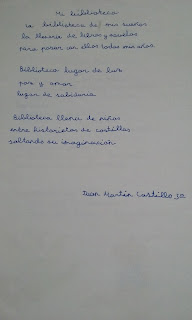 Mi biblioteca
La biblioteca de mis sueños
la llenaría de libros y abuelos
para pasar con ellos todos mis años
Biblioteca lugar de luz
paz y amor
lugar de sabiduría
Biblioteca llena de niños
entre historietas de castillos
soltando su imaginación
Juan Martín Castillo 3º